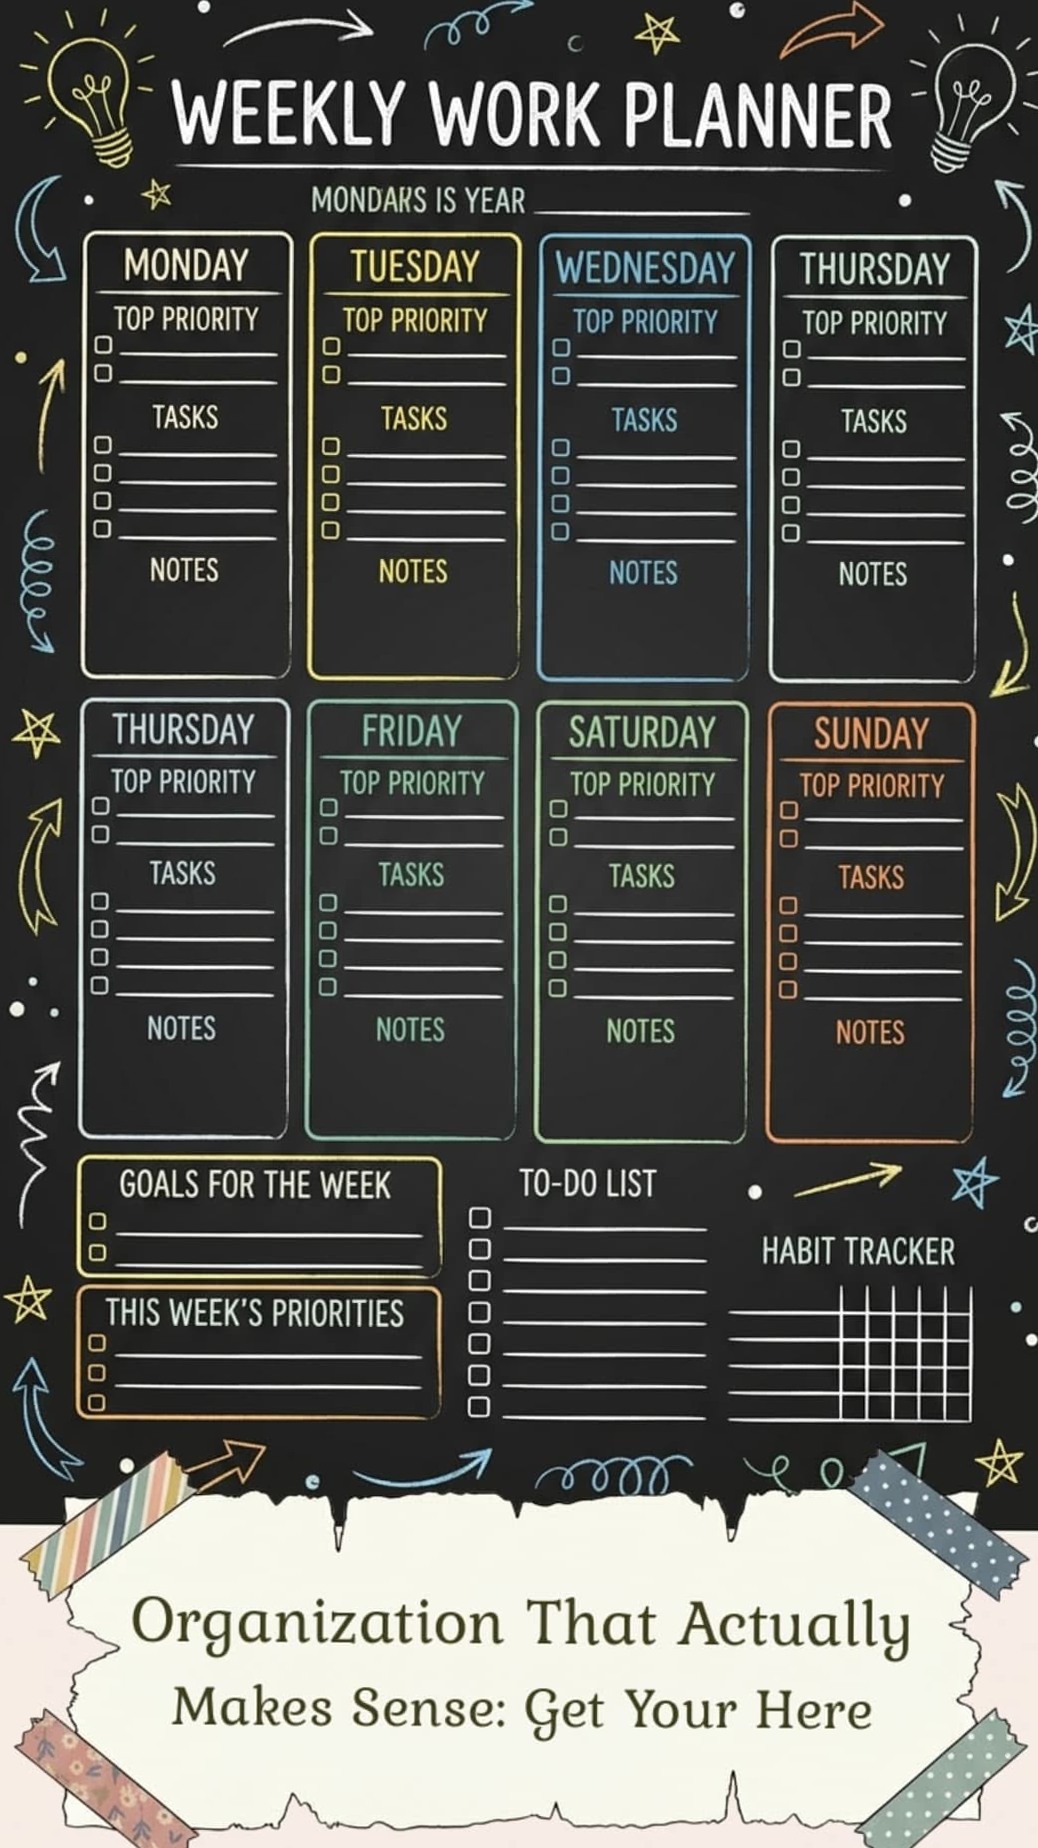 WEEKLY WORK PLANNER
MONDAKS IS YEAR
MONDAY
TOP PRIORITY
TASKS
NOTES
TUESDAY
TOP PRIORITY
TASKS
NOTES
WEDNESDAY
TOP PRIORITY
TASKS
NOTES
THURSDAY
TOP PRIORITY
TASKS
NOTES
THURSDAY
TOP PRIORITY
TASKS
NOTES
FRIDAY
TOP PRIORITY
TASKS
NOTES
SATURDAY
TOP PRIORITY
TASKS
NOTES
SUNDAY
TOP PRIORITY
TASKS
NOTES
GOALS FOR THE WEEK
THIS WEEK'S PRIORITIES
TO-DO LIST
HABIT TRACKER
Organization That Actually
Makes Sense: Get Your Here